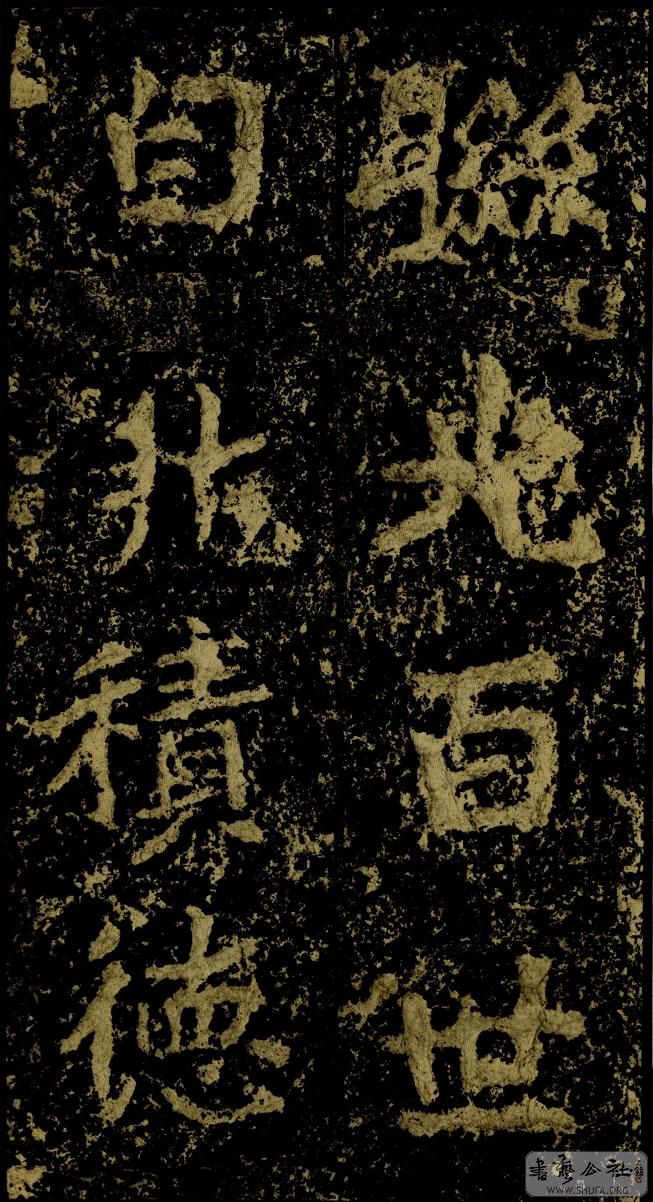 聯百世
自非積德
書藝公社
WWW.SHUFA.ORG